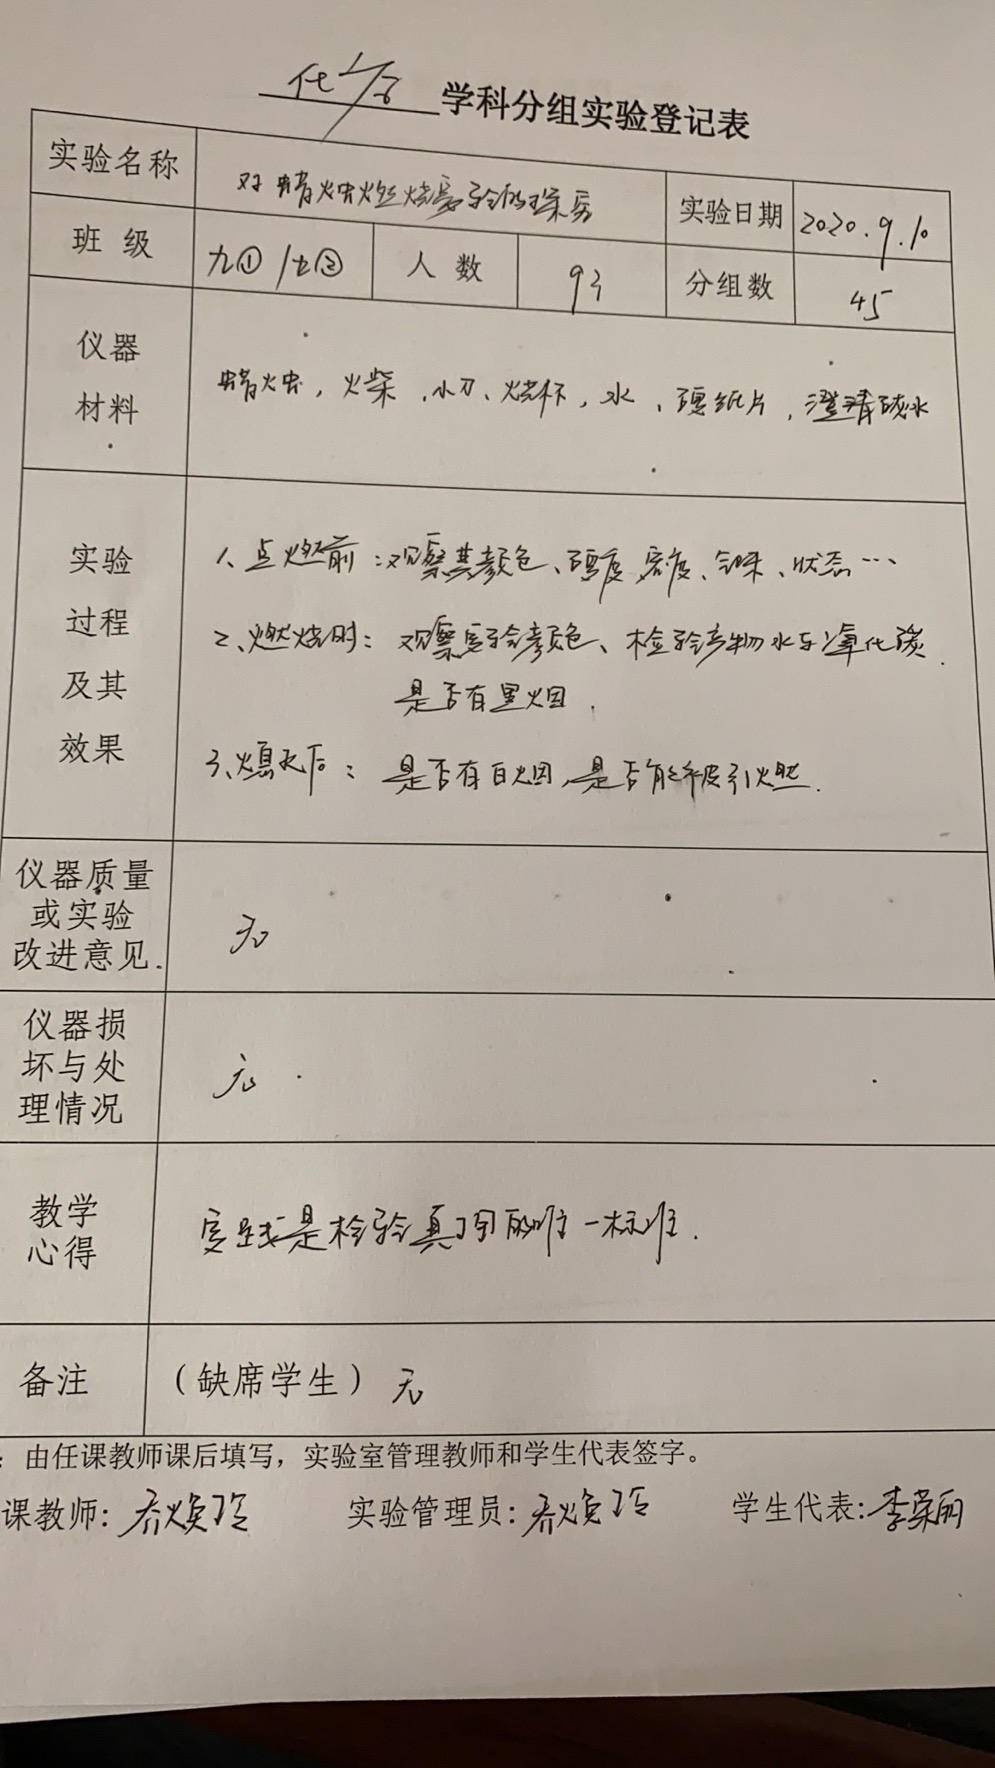 化学 学科分组实验登记表
实验名称 对蜡烛燃烧实验的探究 实验日期 2020.9.10
班 级 九① /九② 人 数 93 分组数 45
仪器
材料
蜡烛, 火柴、小刀、烧杯, 水、硬纸片, 澄清石灰水
实验
过程
及其
效果
1、点燃前:观察其颜色、硬度、密度、气味、状态…
2、燃烧时: 观察实验颜色、检验产物水与二氧化碳.
是否有黑烟.
3、熄灭后: 是否有白烟,是否能被引燃.
仪器质量
或实验
改进意见.
无
仪器损
坏与处
理情况
无
教学
心得
实践是检验真理的唯一标准.
备注 (缺席学生) 无
:由任课教师课后填写,实验室管理教师和学生代表签字。
课教师: 乔焕玲 实验管理员: 乔焕玲 学生代表: 李荣丽